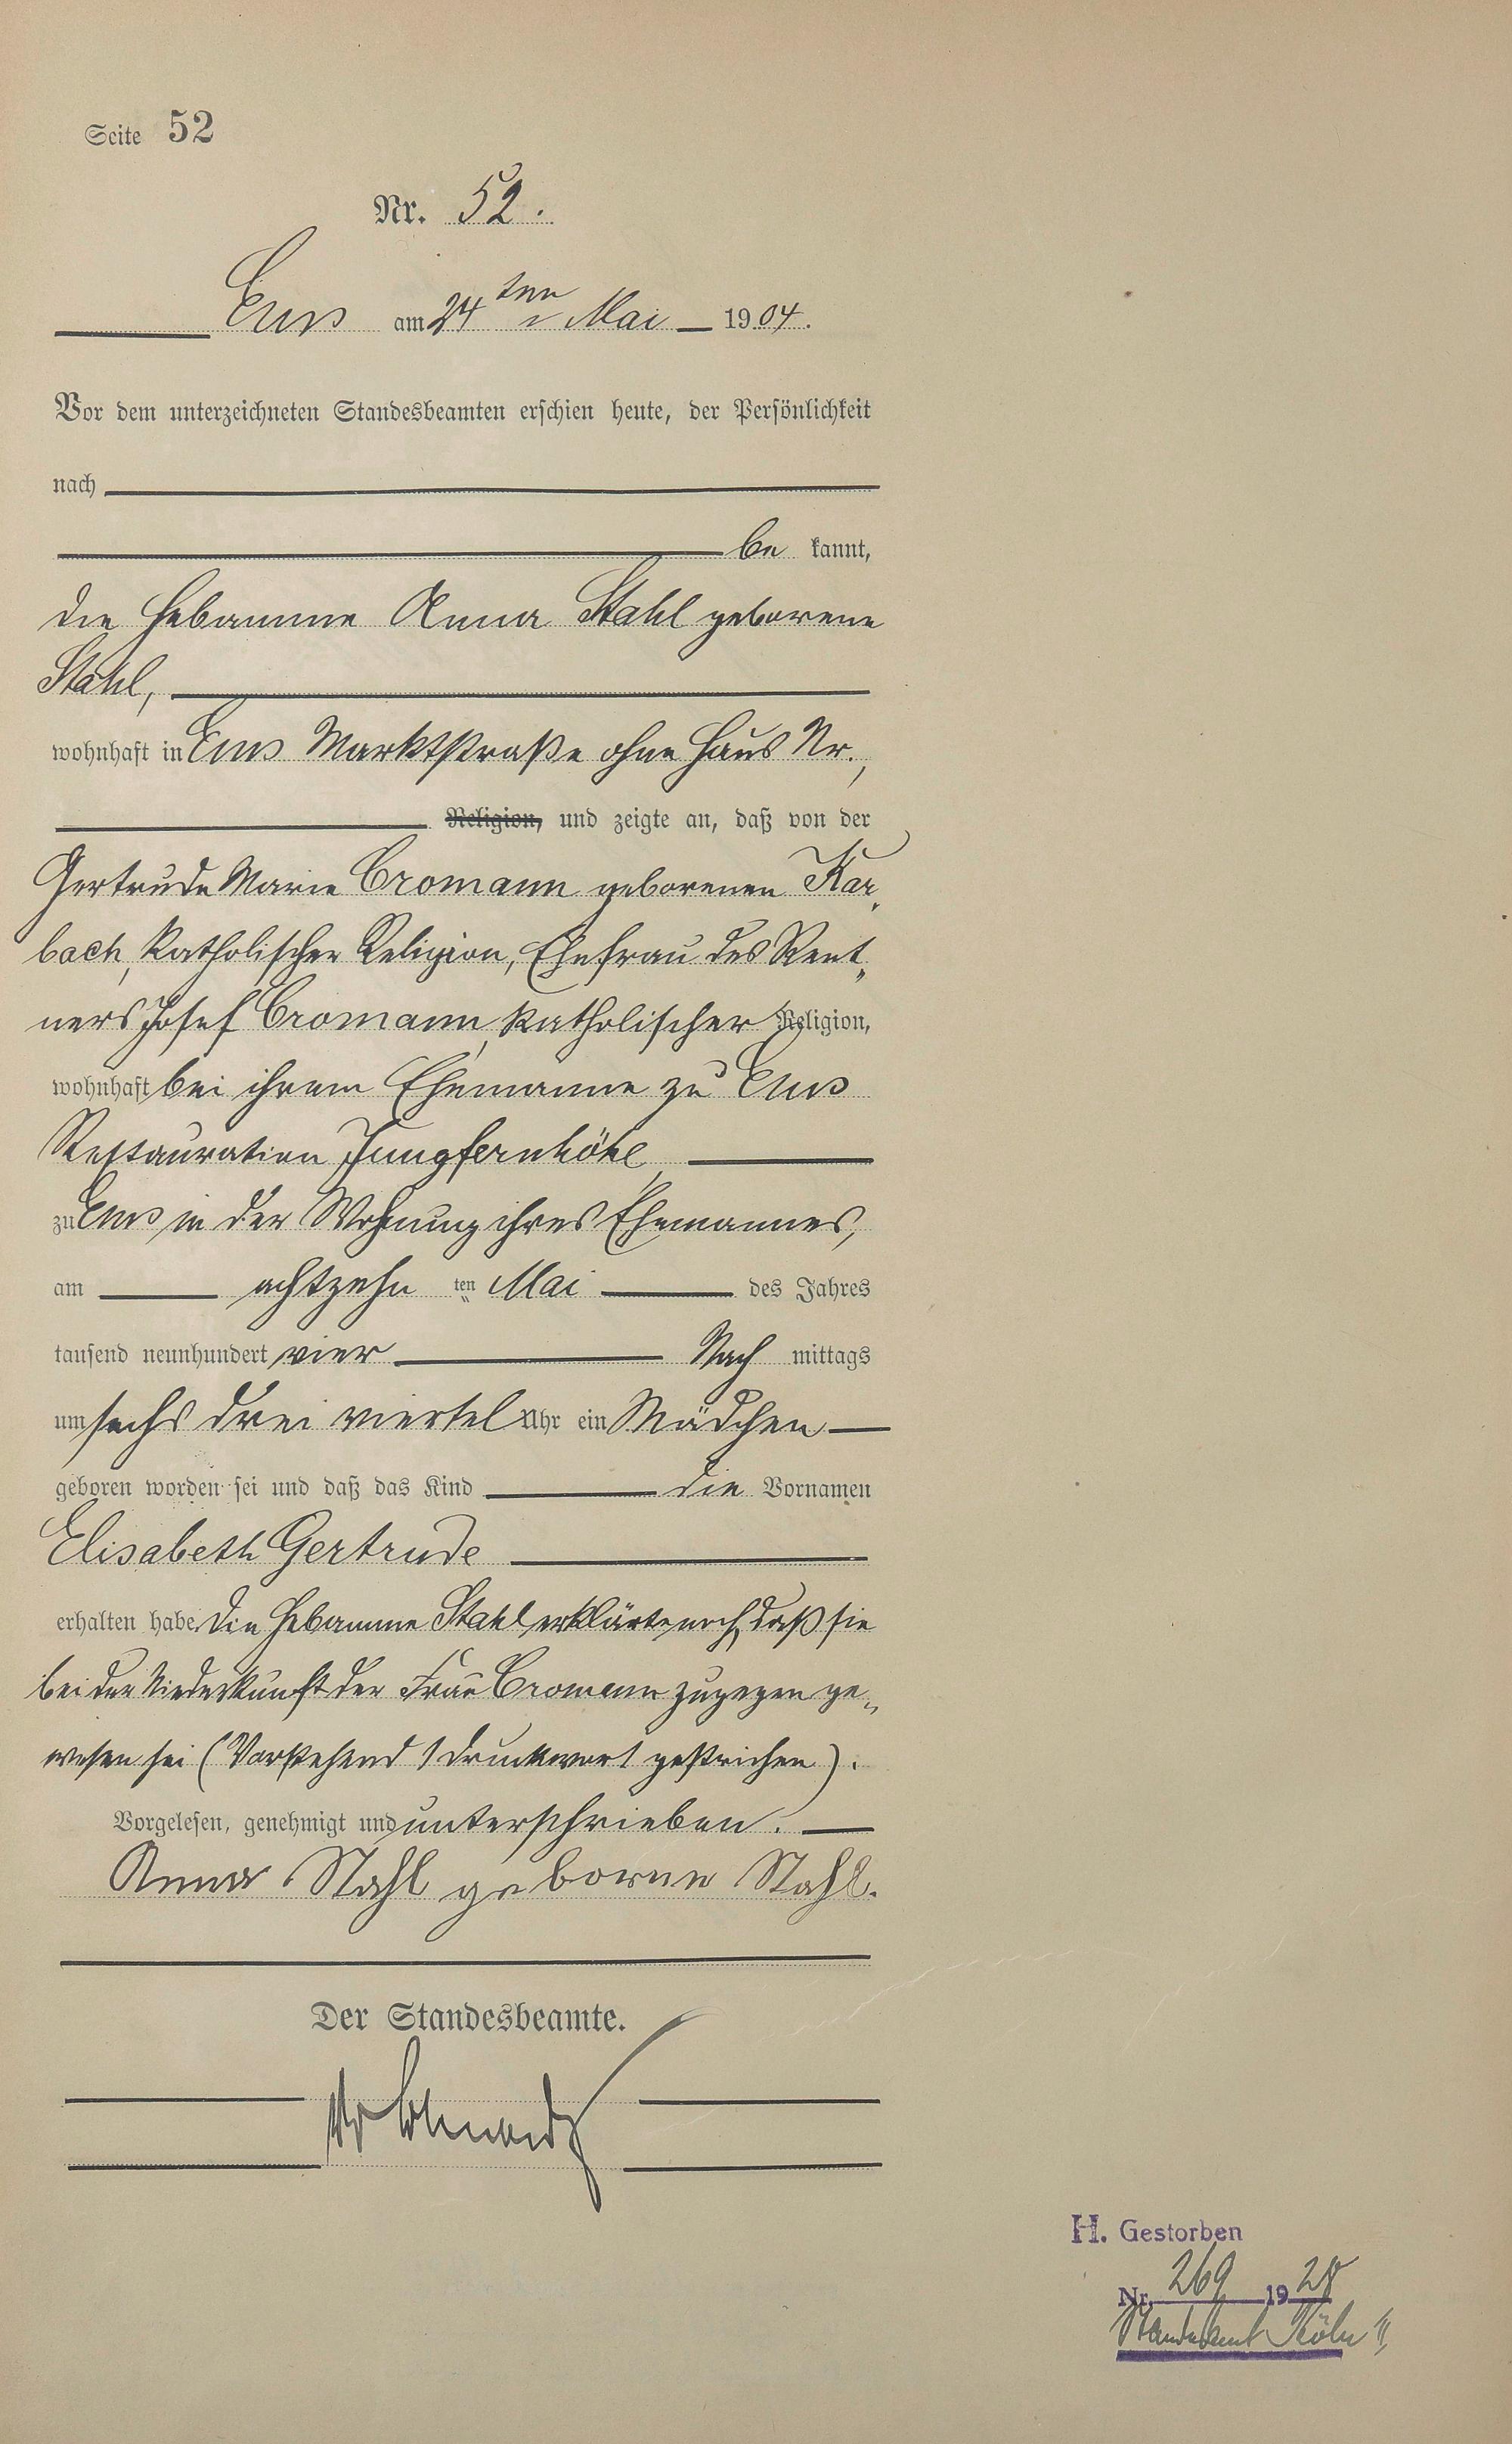 Seite 52
Nr. 52.
Ems am 24ten Mai 1904.
Vor dem unterzeichneten Standesbeamten erschien heute, der Persönlichkeit
nach
be kannt,
die Hebamme Anna Stahl geborene
Stahl,
wohnhaft in Ems Marktstraße ohne Haus Nr.,
Religion, und zeigte an, daß von der
Gertrude Marie Cromann geborenen Kar„
bach, katholischer Religion, Ehefrau des Rent„
ners Josef Cromann, katholischer Religion,
wohnhaft bei ihrem Ehemanne zu Ems
Restauration Jungfernhöhe,
zu Ems in der Wohnung ihres Ehemannes,
am achtzehn ten Mai des Jahres
tausend neunhundert vier Nach mittags
um sechs drei viertel Uhr ein Mädchen
geboren worden sei und daß das Kind die Vornamen
Elisabeth Gertrude
erhalten habe. Die Hebamme Stahl erklärte noch, daß sie
bei der Niederkunft der Frau Cromann zugegen ge„
wesen sei (Vorstehend 1 Druckwort gestrichen).
Vorgelesen, genehmigt und unterschrieben.
Anna Stahl geborne Stahl.
Der Standesbeamte.
H. Gestorben
Nr. 269 1928
Standesamt Köln